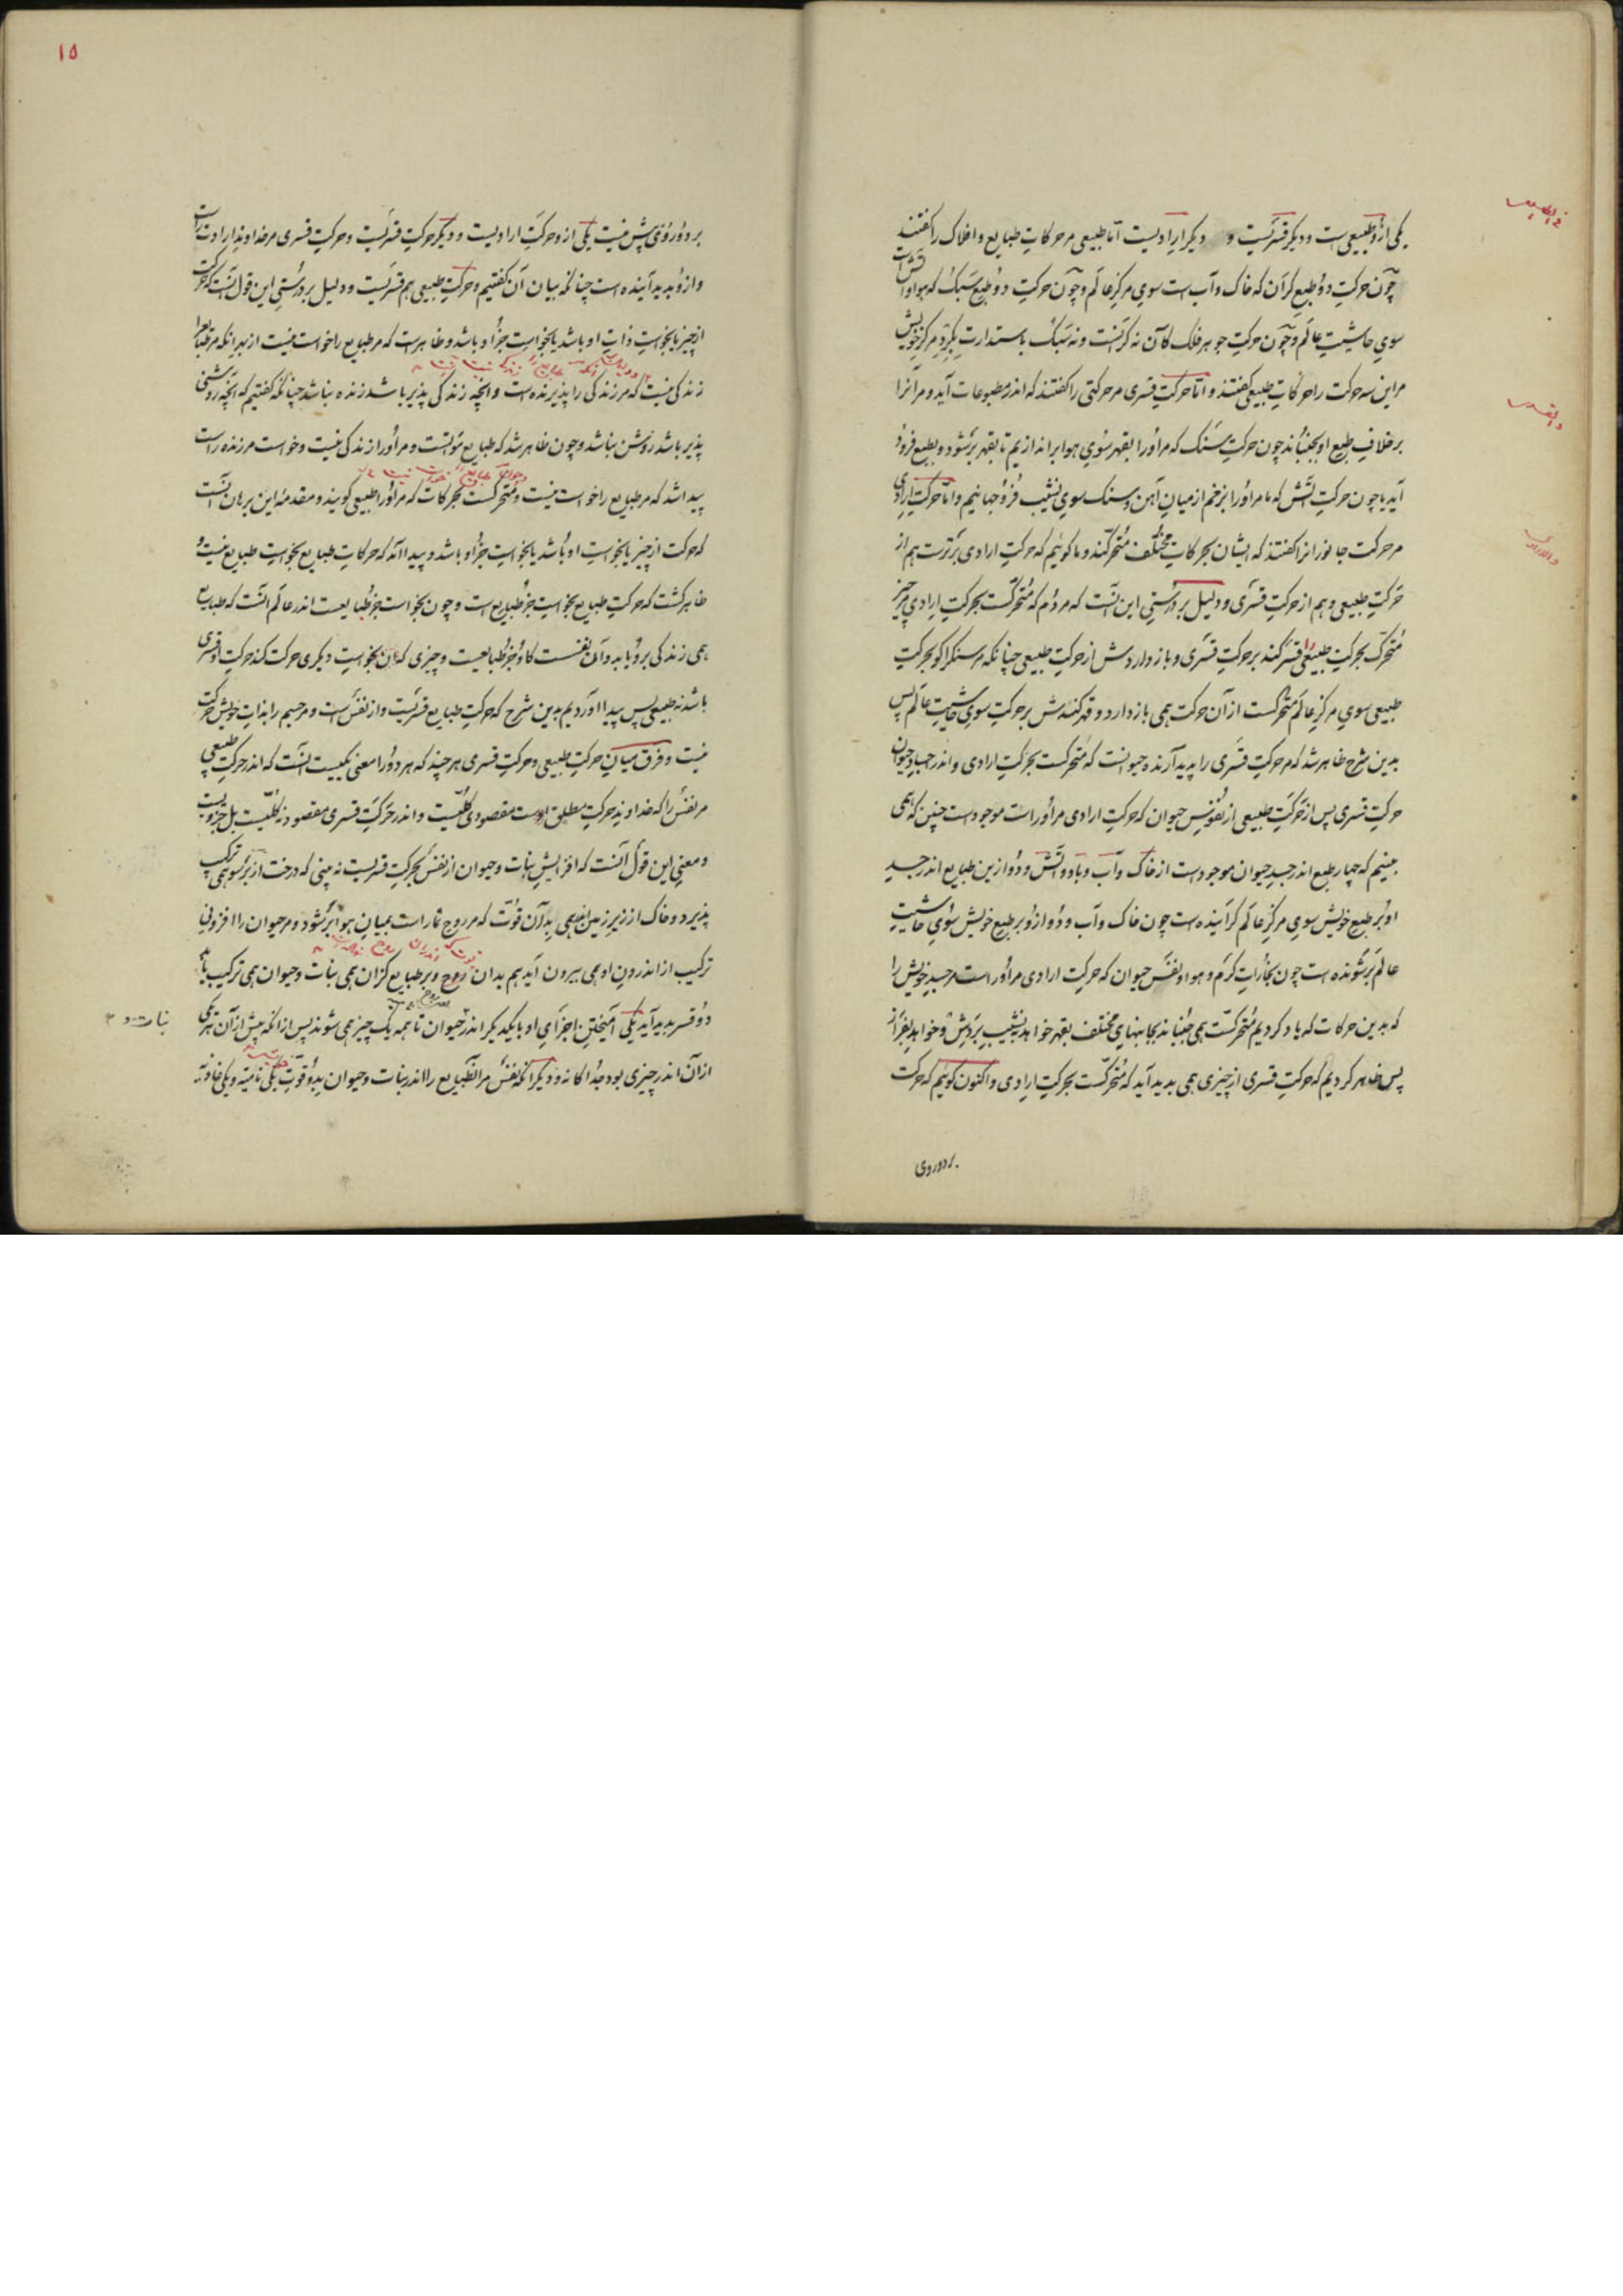 یکی ازو طبیعی است و دیگر قسریست و دیگر ارادیست اما طبیعی مر حرکات طبایع و افلاک را گفتند
چون حرکت دو طبع گران که خاک و آب است سوی مرکز عالم و چون حرکت دو طبع سبک که هوا و آتش است
سوی حاشیت عالم و چون حرکت جوهر فلک کان نه گرانست و نه سبک باستدارت بگرد مرکز خویش
مر این سه حرکت را حرکات طبیعی گفتند و اما حرکت قسری مر حرکتی را گفتند که اندر مطبوعات آید و مر آنرا
بر خلاف طبع او بجنباند چون حرکت سنگ که مر او را بقهر سوی هوا براندازیم تا بقهر برشود و بطبع فرود
آید یا چون حرکت آتش که ما مر او را بزخم از میان آهن و سنگ سوی نشیب فرو جهانیم و اما حرکت ارادی
مر حرکت جانوران را گفتند که ایشان بحرکات مختلف متحرکند و ما گوئیم که حرکت ارادی برترست هم از
حرکت طبیعی و هم از حرکت قسری و دلیل بر درستی این آنست که مردم که متحرکست بحرکت ارادی مر چیز
متحرک بحرکت طبیعی را قسر کند بر حرکت قسری و باز داردش از حرکت طبیعی چنانکه مر سنگ را کو بحرکت
طبیعی سوی مرکز عالم متحرکست از آن حرکت همی باز دارد و قهر کندش بر حرکت سوی حاشیت عالم پس
بدین شرح ظاهر شد که مر حرکت قسری را پدید آرنده حیوانست که متحرکست بحرکت ارادی و اندر جسد حیوان
حرکت قسری پس از حرکت طبیعی از نفوس حیوان که حرکت ارادی مر او راست موجودست چنین که همی
بینیم که چهار طبع اندر جسد حیوان موجودست از خاک و آب و باد و آتش و دو ازین طبایع اندر جسد
او بر طبع خویش سوی مرکز عالم گراینده است چون خاک و آب و دو ازو بر طبع خویش سوی حاشیت
عالم برشونده است چون بخارات گرم و هوا و نفس حیوان که حرکت ارادی مر او راست مر جسد خویش را
که بدین حرکات که یاد کردیم متحرکست همی جنباند بجانبهای مختلف بقهر خواهد بنشیب بردش و خواهد بفراز
پس ظاهر کردیم که حرکت قسری از چیزی همی پدید آید که متحرکست بحرکت ارادی و اکنون گوئیم که حرکت
بر دو روی
۱۵
بر دو روی بیش نیست یکی ازو حرکت ارادیست و دیگر حرکت قسریست و حرکت قسری مر خداوند ارادت راست
و ازو پدید آینده است چنانکه بیان آن گفتیم و حرکت طبیعی هم قسریست و دلیل بر درستی این قول آنست که حرکت
از چیز یا بخواست ذات او باشد یا بخواست جز او باشد و ظاهرست که مر طبایع را خواست نیست از بهر آنکه مر طبایع را
زندگی نیست که مر زندگی را پذیرنده است و آنچه زندگی پذیر باشد زنده نباشد چنانکه گفتیم که آنچه روشنی
پذیر باشد روشن نباشد و چون ظاهر شد که طبایع مواتست و مر او را زندگی نیست و خواست مر زنده راست
پیدا شد که مر طبایع را خواست نیست و متحرکست بحرکات که مر او را طبیعی گویند و مقدمه این برهان آنست
که حرکت از چیز یا بخواست او باشد یا بخواست جز او باشد و پیدا آمد که حرکات طبایع بخواست طبایع نیست و
ظاهر گشت که حرکت طبایع بخواست جز طبایع است و چون بخواست جز طبایعست اندر عالم آنست که طبایع
همی زندگی برو یابد و آن نفسست کاو جز طبایعست و چیزی که آن بخواست دیگری حرکت کند حرکت او قسری
باشد نه طبیعی پس پیدا آوردیم بدین شرح که حرکت طبایع قسریست و از نفس است و مر جسم را بذات خویش حرکت
نیست و فرق میان حرکت طبیعی و حرکت قسری هر چند که هر دو را معنی یکیست آنست که اندر حرکت طبیعی
مر نفس را که خداوند حرکت مطلق اوست مقصودی کلیست و اندر حرکت قسری مقصود نه کلیست بل جزویست
و معنی این قول آنست که افزایش نبات و حیوان از نفس بحرکت قسریست نه بینی که درخت از بر سو همی ترکیب
پذیرد و خاک از زیر زمین همی بدان قوت که مر روح نما راست بمیان هوا برشود و مر حیوان را افزونی
ترکیب از اندرون او همی بیرون آید هم بدان روح و بر طبایع کزان همی نبات و حیوان همی ترکیب یابد
دو قسر پدید آید یکی آمیختن اجزای او بایکدیگر اندر حیوان تا همه یک چیز همی شوند پس از آنکه پیش از آن هر یکی
از آن اندر چیزی بود جدا گانه و دیگر آنکه نفس مر آن طبایع را اندر نبات و حیوان بدو قوت یکی نامیه و یکی غاذیه
نبات و